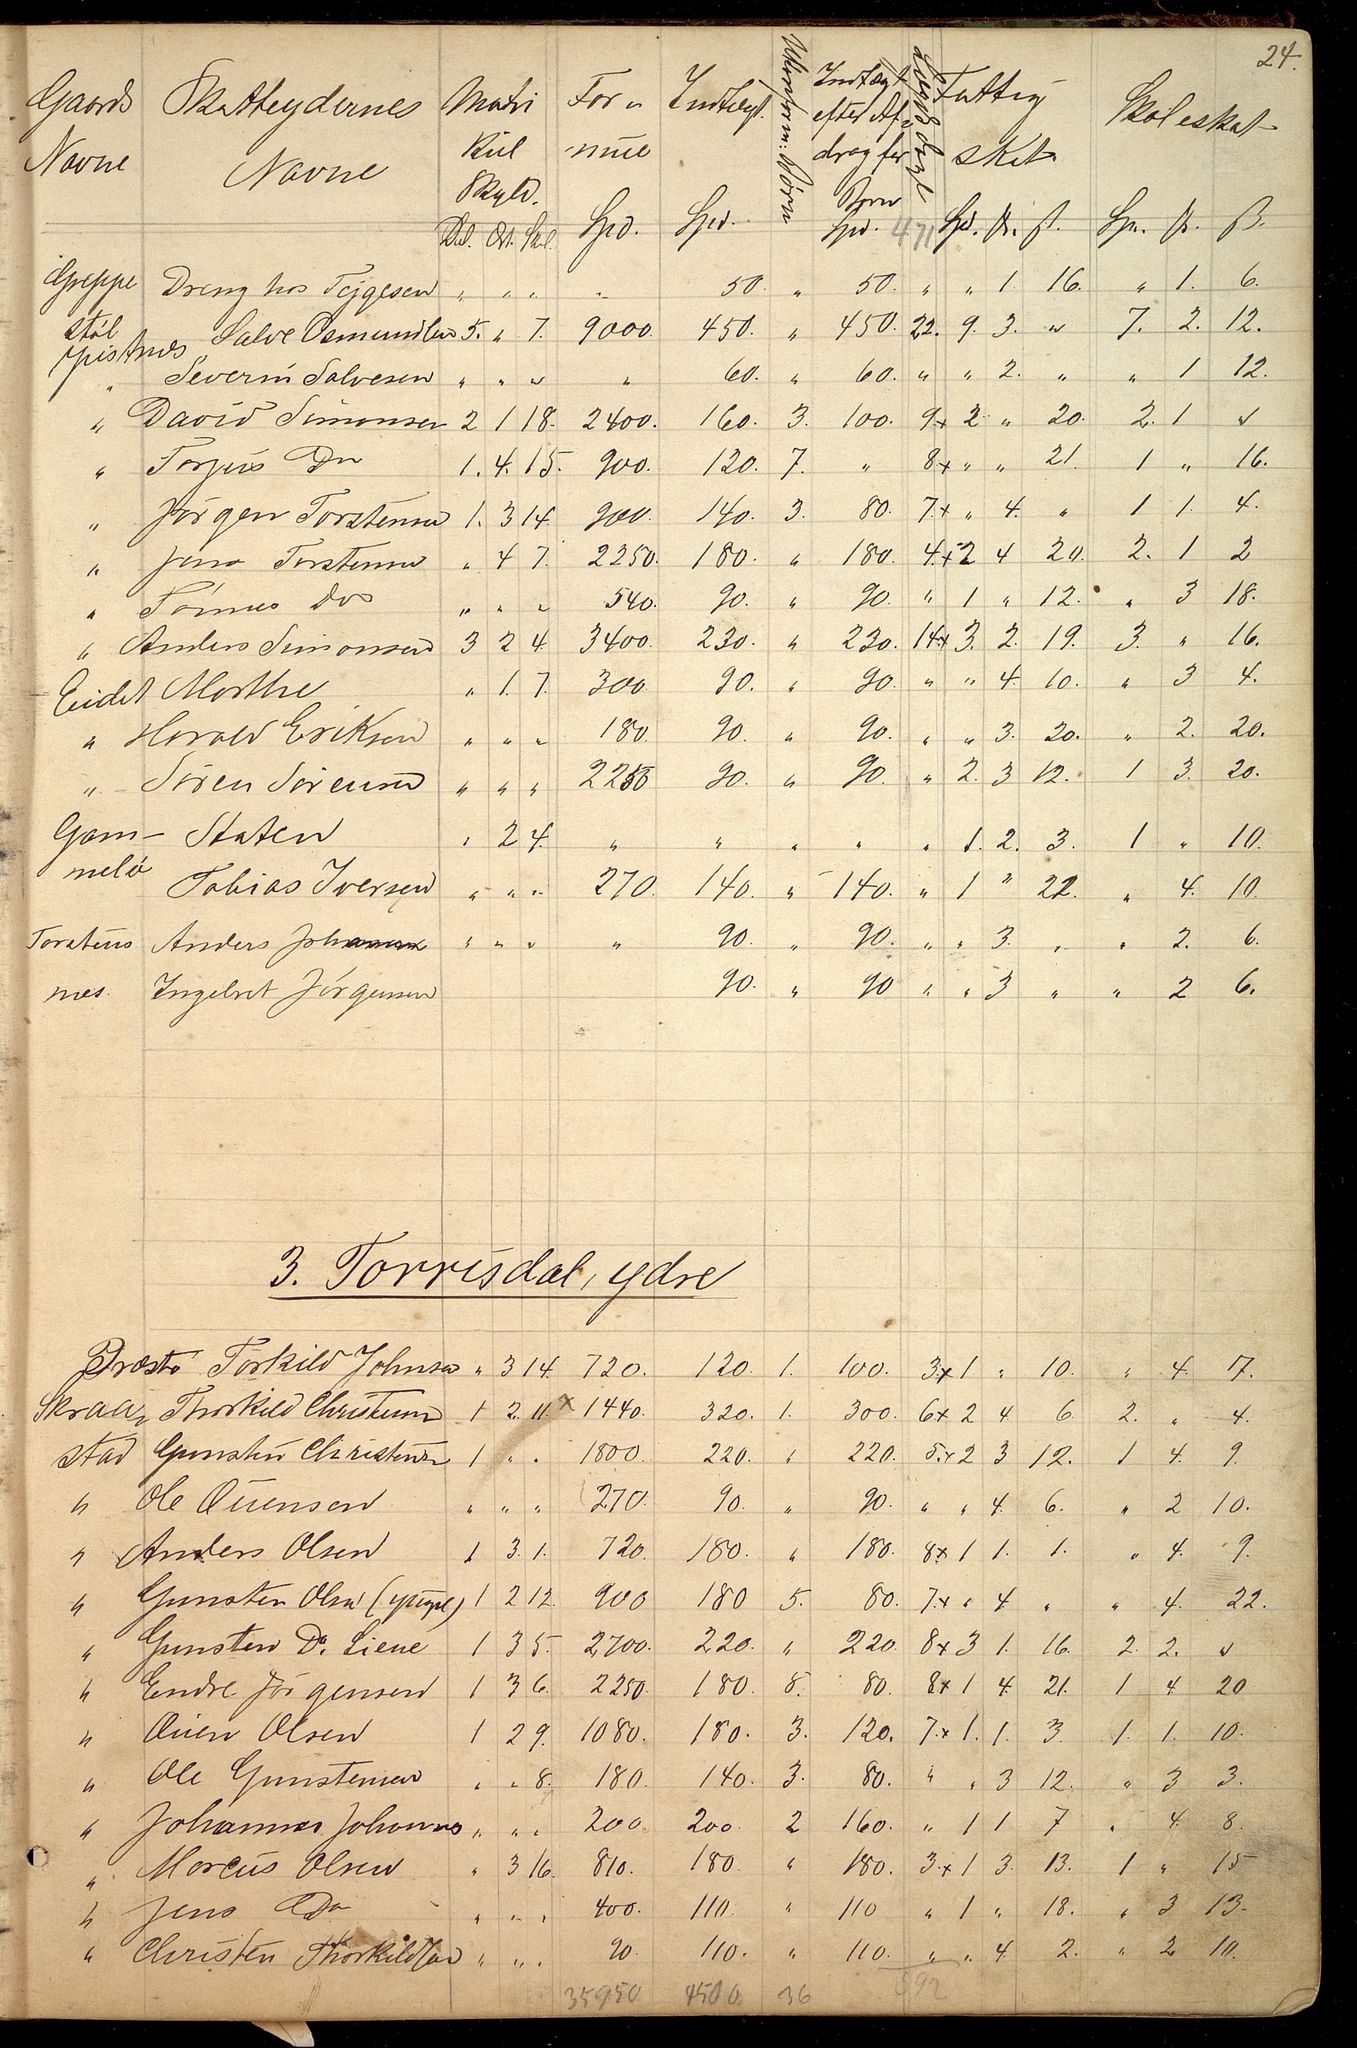 24.
Gaards Navne Skatteydernes Navne Matri kul Skyld. For mue Indtægt. Uforsørg: Børn Indtægt efter Af drag for Børn Fattig skat Skoleskat
Dal. Ort. Skl. Spd. Spd. Spd. 471 Spd. ß. Spd. ß.
Greppe Dreng hos Tejgesen " " " " 50. " 50. " " 1. 16. " 1. 6.
støl Salve Osmundsen 5. " 7. 9000. 450. " 450. 22. 9. 3. " 7. 2. 12.
" Severin Salvesen " " " " 60. " 60. " " 2. " " 1 12.
" David Simonsen 2 1 18. 2400. 160. 3. 100. 9x 2 " 20. 2. 1 "
" Torjus Do 1. 4. 15. 900. 120. 7. " 8x " " 21. 1 " 16.
" Jørgen Torstensen 1. 3 14. 900. 140. 3. 80. 7x " 4. " 1 1. 4.
" Jens Torstensen " 4 7. 2250. 180. " 180. 4x 2 4 20. 2. 1 2
" Tønnes Do " " " 540. 90. " 90. " 1 " 12. " 3 18.
" Anders Simonsen 3 2 4. 3400. 230. " 230. 14x 3. 2. 19. 3. " 16.
Eidet Marthe " 1. 7. 300. 90. " 90. " " 4. 10. " 3 4.
" Harald Eriksen " " " 180. 90. " 90. " " 3. 20. " 2. 20.
" Søren Sørensen " " " 2250 90. " 90. " 2. 3 12. 1 3. 20.
Gam- Staten " 2 4. " " " " " 1. 2. 3. 1 " 10.
melø Tobias Iversen " " " 270. 140. " 140. " 1 " 22. " 4. 10.
Torstens Anders Johannesen " " " " 90. " 90. " " 3. " " 2. 6.
nes. Ingebret Jørgensen 90. " 90 " " 3 " " 2 6.
3. Torrisdal, ydre
Præstø Torkild Johnsen " 3 14. 720. 120. 1. 100. 3x 1 " 10. " 4. 17.
Skraa- Thorkild Christensen 1 2. 11. x 1440. 320. 1. 300. 6x 2 4. 6. 2. " 4.
stad Gunsten Christensen 1 " " 1800. 220. " 220. 5x 2 3 12. 1 4. 9.
" Ole Ouensen " " " 270. 90. " 90. " " 4. 6. " 2 10.
" Anders Olsen 1 3. 1. 720. 180. " 180. 8x 1 1. 1. " 4. 9.
" Gunsten Olsen 1 2 12. 900 180 5. 80. 7x " 4 " " 4. 22.
" Gunsten Do. Liene 1 3 5. 2700. 220. " 220. 8x 3 1. 16. 2. 2. "
" Endre Jørgensen 1 3 6. 2250. 180. 8. 80. 8x 1 4 21. 1 4 20
" Ouen Olsen 1 2 9. 1080. 180. 3. 120. 7x 1. 1. 3. 1. 1. 10.
" Ole Gunstensen " " 8. 180. 140. 3. 80. " " 3 12. " 3 3.
" Johannes Johannes " " " 200. 200. 2 160. " 1 1 7 " 4. 8.
" Marcus Olsen " 3 16. 810. 180. " 180. 3x 1 3. 13. 1 " 15
" Jens Do " " " 400. 110. " 110 " 1 " 18. " 3 13.
" Christen Thorkildsen " " " 90. 110. " 110. " " 4 2. " 2 10.
35950 4500 36 592